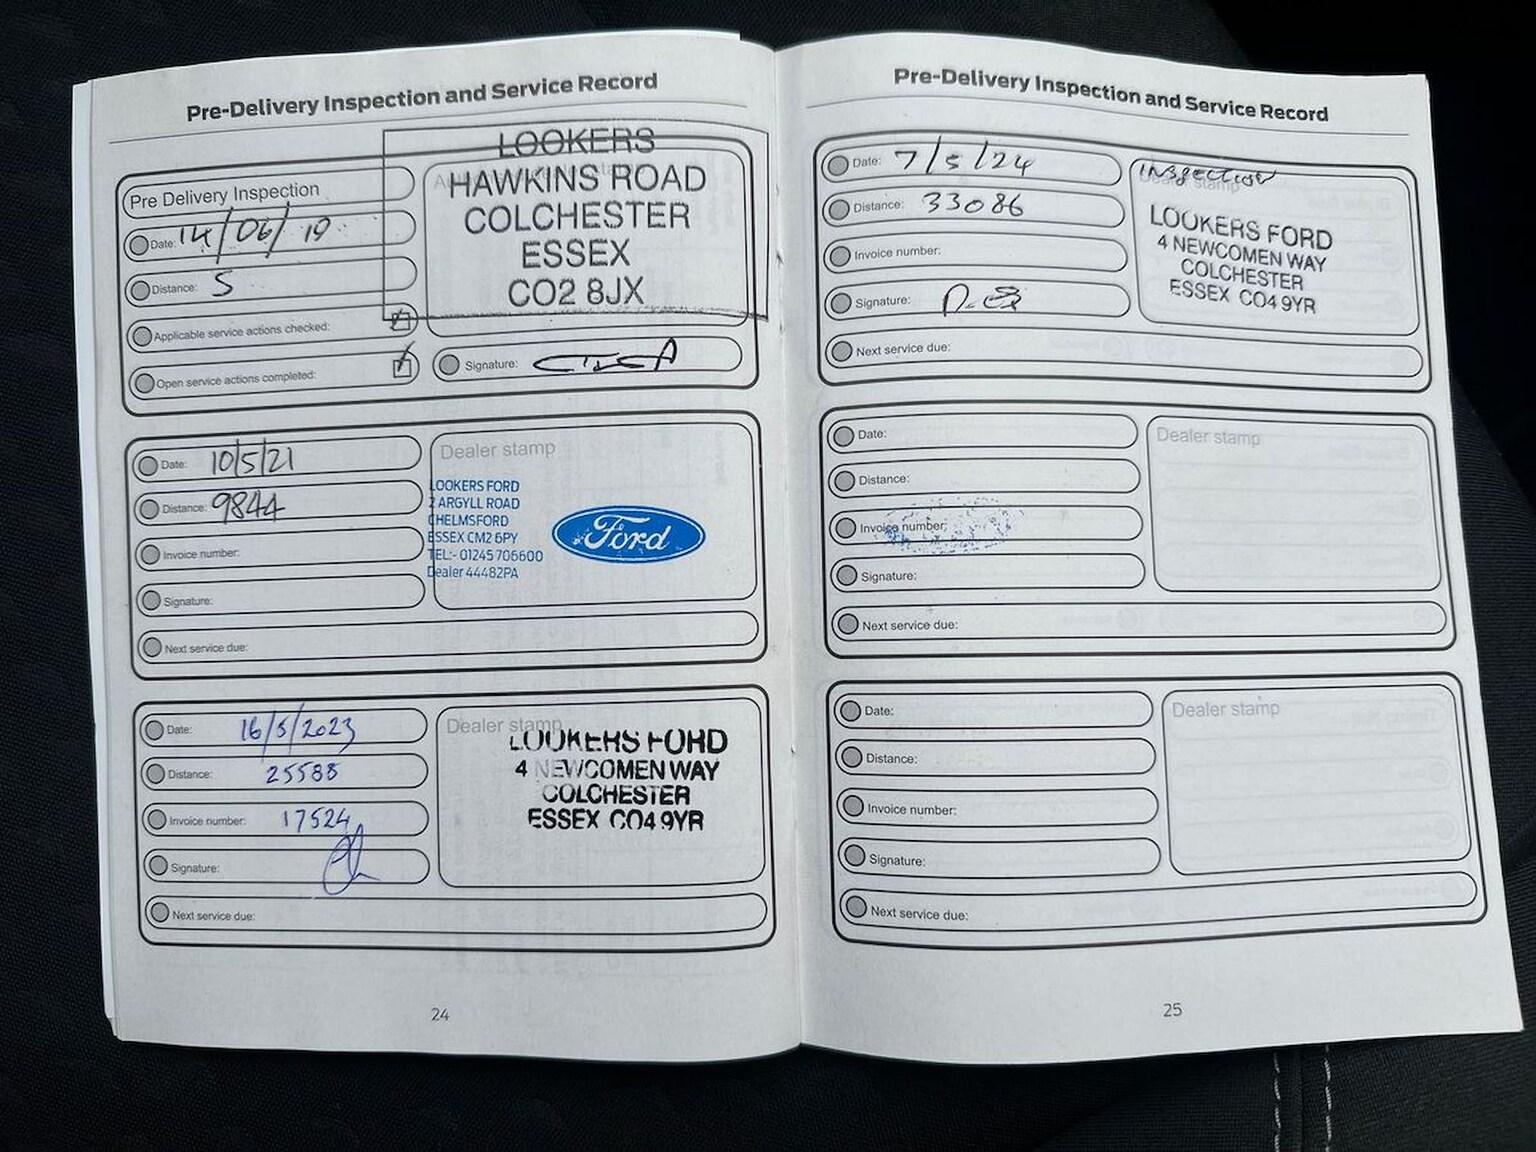 Pre-Delivery Inspection and Service Record
Pre Delivery Inspection
Date: 14/06/19
Distance: 5
Applicable service actions checked:
Open service actions completed:
LOOKERS
HAWKINS ROAD
COLCHESTER
ESSEX
CO2 8JX
Signature:
Date: 10/5/21
Distance: 9844
Invoice number:
Signature:
Next service due:
Dealer stamp
LOOKERS FORD
2 ARGYLL ROAD
CHELMSFORD
ESSEX CM2 6PY
TEL:- 01245 706600
Dealer 44482PA
Ford
Date: 16/5/2023
Distance: 25588
Invoice number: 17524
Signature:
Next service due:
Dealer stamp
LOOKERS FORD
4 NEWCOMEN WAY
COLCHESTER
ESSEX CO4 9YR
24
Pre-Delivery Inspection and Service Record
Date: 7/5/24
Distance: 33086
Invoice number:
Signature:
Next service due:
Inspection
Dealer stamp
LOOKERS FORD
4 NEWCOMEN WAY
COLCHESTER
ESSEX CO4 9YR
Date:
Distance:
Invoice number:
Signature:
Next service due:
Dealer stamp
Date:
Distance:
Invoice number:
Signature:
Next service due:
Dealer stamp
25